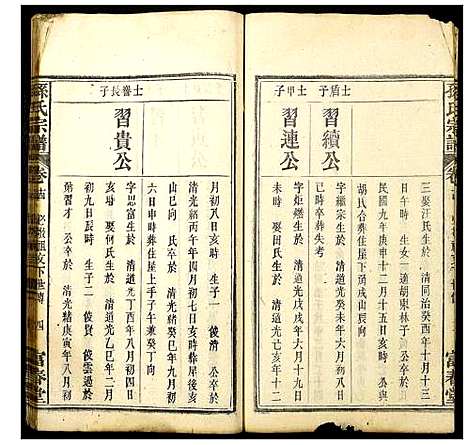 三娶汪氏生於 清同治癸酉年十月十三
亥時 生女一 適胡東林子 公卒於
民國九年庚申十二月十五日亥時
胡氏合葬住屋上手頂戌山辰向
士盾子
習續公
字繼宗生於 清道光六年
時 卒葬失考
士甲子
習連公
字炬鑑生於 清道光 戌年六月十九日
未時 娶田氏生於 清道光 亥年十二
月初八日亥時 生子一 俊清 公卒於
清光緒丙午年四月初七日亥時葬屋後亥
山巳向 氏卒於 清光緒癸巳年九月初
六日申時葬住屋上手子午兼癸丁向
士譽長子
習貴公
字思富生於 清道光丁酉年八月初四日
亥時 娶何氏生於 清道光乙巳年二月
初九日辰時 生子二 俊賢 俊雲過於
葉習才 公卒於 清光緒庚寅年八月初
孫氏宗譜
卷
富春堂
孫氏宗譜
卷
下世傳
四
富春堂